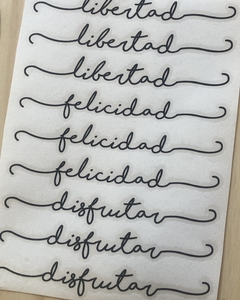 libertad
libertad
libertad
felicidad
felicidad
felicidad
disfrutar
disfrutar
disfrutar